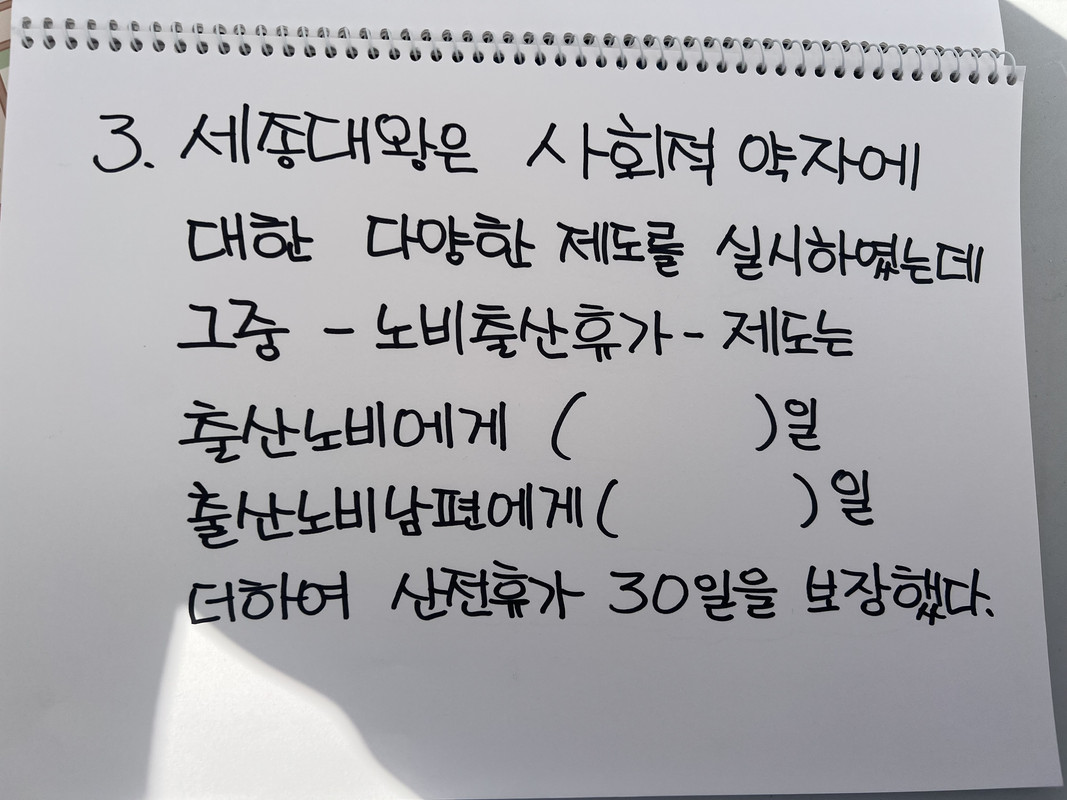 3. 세종대왕은 사회적 약자에
대한 다양한 제도를 실시하였는데
그중 - 노비출산휴가 - 제도는
출산노비에게 (        )일
출산노비남편에게 (        )일
더하여 산전휴가 30일을 보장했다.